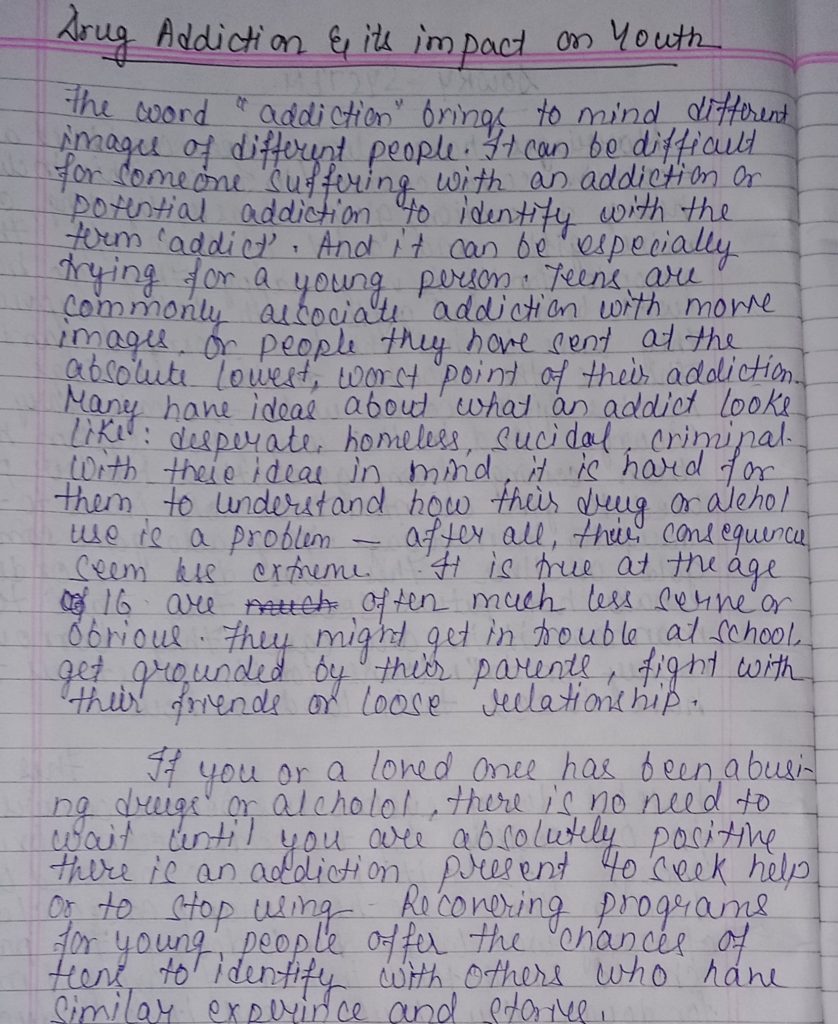 Drug Addiction & its impact on Youth
The word "addiction" brings to mind different
images of different people. It can be difficult
for someone suffering with an addiction or
potential addiction to identify with the
term 'addict'. And it can be especially
trying for a young person. Teens are
commonly associate addiction with movie
images. Or people they have sent at the
absolute lowest, worst point of their addiction.
Many have ideas about what an addict looks
like: desperate, homeless, sucidal, criminal.
With these ideas in mind, it is hard for
them to understand how their drug or alchol
use is a problem — after all, their consequence
seem less extreme. It is true at the age
of 16 are much often much less serine or
obvious. They might get in trouble at school,
get grounded by their parents, fight with
their friends or loose relationship.
If you or a loved once has been abusi-
ng drugs or alcholol, there is no need to
wait until you are absolutely positive
there is an addiction present to seek help
or to stop using. Recovering programs
for young people offer the chances of
teens to identify with others who have
similar experince and stories.